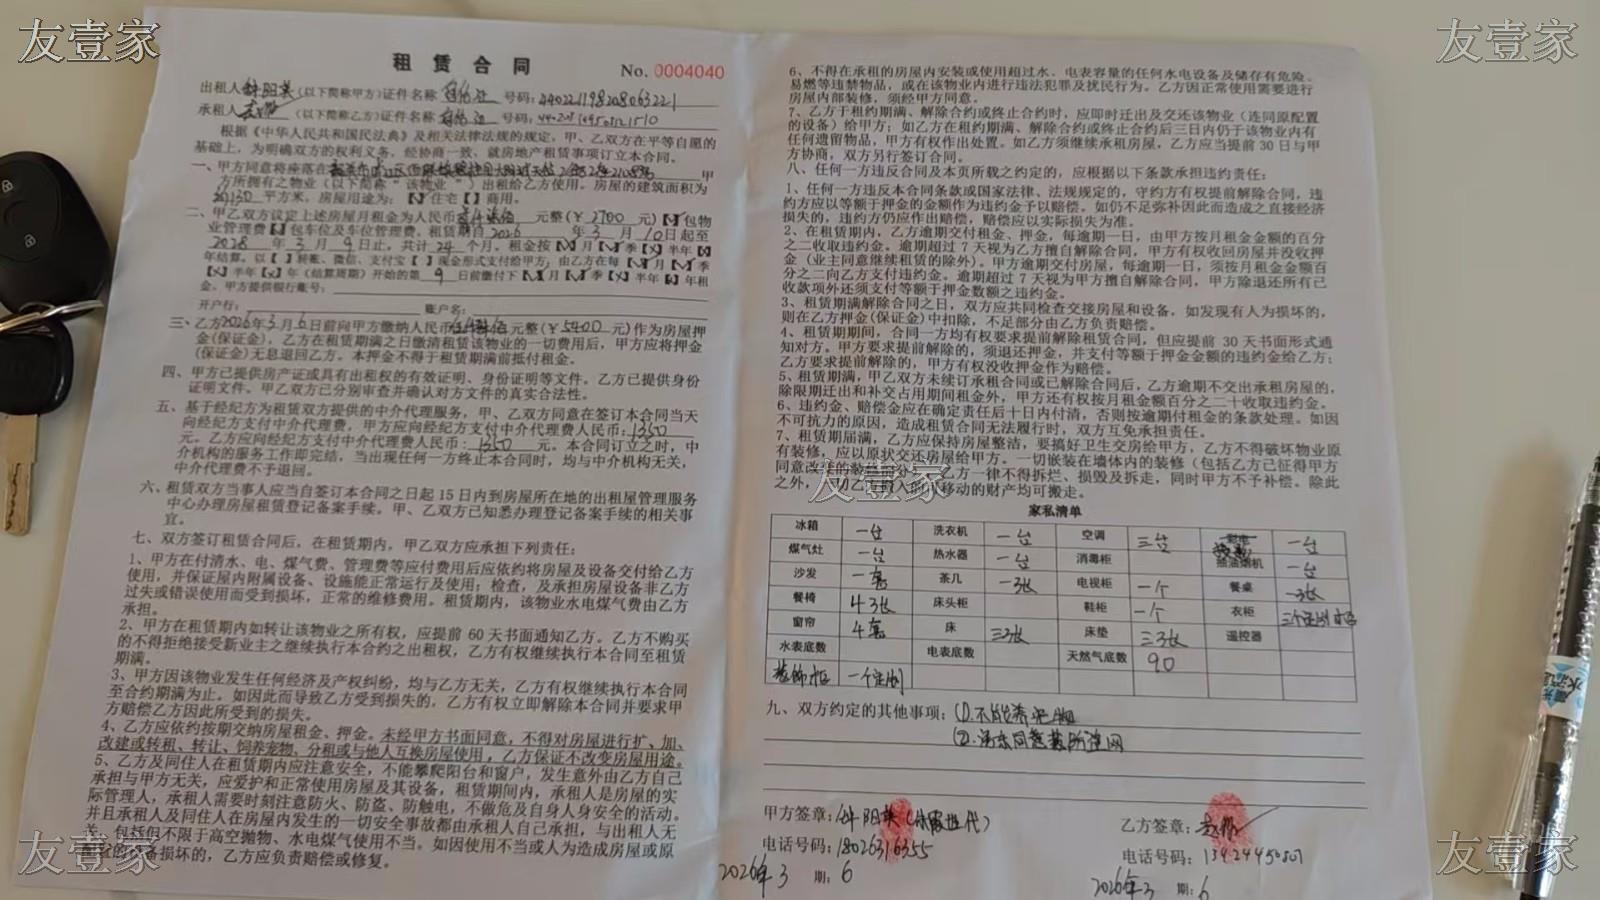 友壹家
友壹家
租 赁 合 同
No. 0004040
出租人 (以下简称甲方)证件名称 身份证 号码:
承租人 (以下简称乙方)证件名称 身份证 号码:
根据《中华人民共和国民法典》及相关法律法规的规定，甲、乙双方在平等自愿的
基础上，为明确双方的权利义务，经协商一致，就房地产租赁事项订立本合同。
一、甲方同意将座落在 甲
方所拥有之物业（以下简称“该物业”）出租给乙方使用。房屋的建筑面积为
130 平方米，房屋用途为：【 】住宅【 】商用。
二、甲乙双方议定上述房屋月租金为人民币 元整(￥2700 元)【 】包物
业管理费【 】包车位及车位管理费。租赁期自2026 年 3 月 10 日起至
2028 年 3 月 9 日止，共计 24 个月。租金按【 】月【 】季【 】半年【 】
年结算。以【 】转账、微信、支付宝【 】现金形式支付给甲方；由乙方在每【 】月【 】季
【 】半年【 】年（结算周期）开始的第 9 日前缴付下【 】月【 】季【 】半年【 】年租
金。甲方提供银行账号：
开户行： 账户名：
三、乙方2026年3月6日前向甲方缴纳人民币 元整(￥5400 元)作为房屋押
金(保证金)，乙方在租赁期满之日缴清租赁该物业的一切费用后，甲方应将押金
(保证金)无息退回乙方。本押金不得于租赁期满前抵付租金。
四、甲方已提供房产证或具有出租权的有效证明、身份证明等文件。乙方已提供身份
证明文件。甲乙双方已分别审查并确认对方文件的真实合法性。
五、基于经纪方为租赁双方提供的中介代理服务，甲、乙双方同意在签订本合同当天
向经纪方支付中介代理费，甲方应向经纪方支付中介代理费人民币：1350
元。乙方应向经纪方支付中介代理费人民币：1350 元。本合同订立之时，中
介机构的服务工作即完结，当出现任何一方终止本合同时，均与中介机构无关，
中介代理费不予退回。
六、租赁双方当事人应当自签订本合同之日起 15 日内到房屋所在地的出租屋管理服务
中心办理房屋租赁登记备案手续。甲、乙双方已知悉办理登记备案手续的相关事
宜。
七、双方签订租赁合同后，在租赁期内，甲乙双方应承担下列责任：
1、甲方在付清水、电、煤气费、管理费等应付费用后应依约将房屋及设备交付给乙方
使用，并保证屋内附属设备、设施能正常运行及使用；检查，及承担房屋设备非乙方
过失或错误使用而受到损坏，正常的维修费用。租赁期内，该物业水电煤气费由乙方
承担。
2、甲方在租赁期内如转让该物业之所有权，应提前 60 天书面通知乙方。乙方不购买
的不得拒绝接受新业主之继续执行本合约之出租权，乙方有权继续执行本合同至租赁
期满。
3、甲方因该物业发生任何经济及产权纠纷，均与乙方无关，乙方有权继续执行本合同
至合约期满为止。如因此而导致乙方受到损失的，乙方有权立即解除本合同并要求甲
方赔偿乙方因此所受到的损失。
4、乙方应依约按期交纳房屋租金、押金。未经甲方书面同意，不得对房屋进行扩、加、
改建或转租、转让、饲养宠物、分租或与他人互换房屋使用，乙方保证不改变房屋用途。
5、乙方及同住人在租赁期内应注意安全，不能攀爬阳台和窗户，发生意外由乙方自己
承担与甲方无关，应爱护和正常使用房屋及其设备，租赁期间内，承租人是房屋的实
际管理人，承租人需要时刻注意防火、防盗、防触电，不做危及自身人身安全的活动。
并且承租人及同住人在房屋内发生的一切安全事故都由承租人自己承担，与出租人无
关，包括但不限于高空抛物、水电煤气使用不当。如因使用不当或人为造成房屋或原
的设备损坏的，乙方应负责赔偿或修复。
6、不得在承租的房屋内安装或使用超过水、电表容量的任何水电设备及储存有危险、
易燃等违禁物品，或在该物业内进行违法犯罪及扰民行为。乙方因正常使用需要进行
房屋内部装修，须经甲方同意。
7、乙方于租约期满、解除合约或终止合约时，应即时迁出及交还该物业（连同原配置
的设备）给甲方；如乙方在租约期满、解除合约或终止合约后三日内仍于该物业内有
任何遗留物品，甲方有权作出处置。如乙方须继续承租房屋，乙方应当提前 30 日与甲
方协商，双方另行签订合同。
八、任何一方违反合同及本页所载之约定的，应根据以下条款承担违约责任：
1、任何一方违反本合同条款或国家法律、法规规定的，守约方有权提前解除合同，违
约方应以等额于押金的金额作为违约金予以赔偿。如仍不足弥补因此而造成之直接经济
损失的，违约方仍应作出赔偿，赔偿应以实际损失为准。
2、在租赁期内，乙方逾期交付租金、押金，每逾期一日，由甲方按月租金金额的百分
之二收取违约金。逾期超过 7 天视为乙方擅自解除合同，甲方有权收回房屋并没收押
金（业主同意继续租赁的除外）。甲方逾期交付房屋，每逾期一日，须按月租金金额百
分之二向乙方支付违约金。逾期超过 7 天视为甲方擅自解除合同，甲方除退还所有已
收款项外还须支付等额于押金数额之违约金。
3、租赁期满解除合同之日，双方应共同检查交接房屋和设备，如发现有人为损坏的，
则在乙方押金(保证金)中扣除，不足部分由乙方负责赔偿。
4、租赁期期间，合同一方均有权要求提前解除租赁合同，但应提前 30 天书面形式通
知对方。甲方要求提前解除的，须退还押金，并支付等额于押金金额的违约金给乙方；
乙方要求提前解除的，甲方有权没收押金作为赔偿。
5、租赁期满，甲乙双方未续订承租合同或已解除合同后，乙方逾期不交出承租房屋的，
除限期迁出和补交占用期间租金外，甲方还有权按月租金额百分之二十收取违约金。
6、违约金、赔偿金应在确定责任后十日内付清，否则按逾期付租金的条款处理。如因
不可抗力的原因，造成租赁合同无法履行时，双方互免承担责任。
7、租赁期届满，乙方应保持房屋整洁，要搞好卫生交房给甲方，乙方不得破坏物业原
有装修，应以原状交还房屋给甲方。一切嵌装在墙体内的装修（包括乙方已征得甲方
同意改装的装修部分），乙方一律不得拆烂、损毁及拆走，同时甲方不予补偿。除此
之外，一切乙方购入的可移动的财产均可搬走。
友壹家
家私清单
冰箱 一台 洗衣机 一台 空调 三台 一台
煤气灶 一台 热水器 一台 消毒柜 抽油烟机 一台
沙发 一套 茶几 一张 电视柜 一个 餐桌 一张
餐椅 4张 床头柜 鞋柜 一个 衣柜
窗帘 4套 床 三张 床垫 三张 遥控器
水表底数 电表底数 天然气底数 90
装饰柜
九、双方约定的其他事项：(1).不能养宠物
甲方签章：
乙方签章：
电话号码：18026316355
电话号码：
2026年3 期：6
2026年3 期：6
友壹家
友壹家